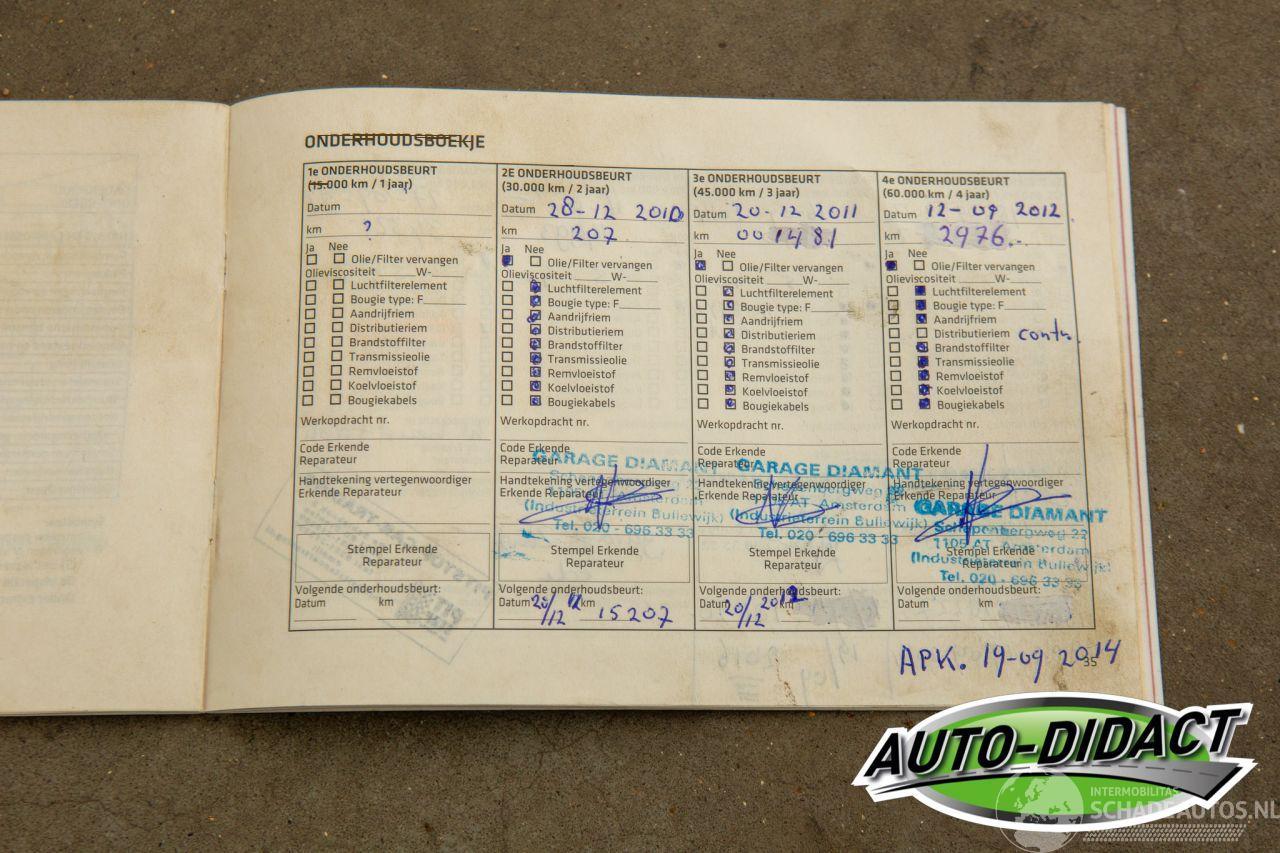 ONDERHOUDSBOEKJE
1e ONDERHOUDSBEURT
(15.000 km / 1 jaar)
Datum
km ?
Ja Nee
Olie/Filter vervangen
Olieviscositeit ______W-_____
Luchtfilterelement
Bougie type: F_______
Aandrijfriem
Distributieriem
Brandstoffilter
Transmissieolie
Remvloeistof
Koelvloeistof
Bougiekabels
Werkopdracht nr.
Code Erkende
Reparateur
Handtekening vertegenwoordiger
Erkende Reparateur
Stempel Erkende
Reparateur
Volgende onderhoudsbeurt:
Datum km
2E ONDERHOUDSBEURT
(30.000 km / 2 jaar)
Datum 28-12 2010
km 207
Ja Nee
Olie/Filter vervangen
Olieviscositeit ______W-_____
Luchtfilterelement
Bougie type: F_______
Aandrijfriem
Distributieriem
Brandstoffilter
Transmissieolie
Remvloeistof
Koelvloeistof
Bougiekabels
Werkopdracht nr.
Code Erkende
Reparateur
GARAGE DIAMANT
Handtekening vertegenwoordiger
Erkende Reparateur
(Industrieterrein Bullewijk)
Tel. 020 - 696 33 33
Stempel Erkende
Reparateur
Volgende onderhoudsbeurt:
Datum 20/12 km 15207
3e ONDERHOUDSBEURT
(45.000 km / 3 jaar)
Datum 20-12 2011
km 001481
Ja Nee
Olie/Filter vervangen
Olieviscositeit ______W-_____
Luchtfilterelement
Bougie type: F_______
Aandrijfriem
Distributieriem
Brandstoffilter
Transmissieolie
Remvloeistof
Koelvloeistof
Bougiekabels
Werkopdracht nr.
Code Erkende
Reparateur
GARAGE DIAMANT
Handtekening vertegenwoordiger
Erkende Reparateur
AT Amsterdam
(Industrieterrein Bullewijk)
Tel. 020 - 696 33 33
Stempel Erkende
Reparateur
Volgende onderhoudsbeurt:
Datum 20/12 2012 km
4e ONDERHOUDSBEURT
(60.000 km / 4 jaar)
Datum 12-09 2012
km 2976.-
Ja Nee
Olie/Filter vervangen
Olieviscositeit ______W-_____
Luchtfilterelement
Bougie type: F_______
Aandrijfriem
Distributieriem contr.
Brandstoffilter
Transmissieolie
Remvloeistof
Koelvloeistof
Bougiekabels
Werkopdracht nr.
Code Erkende
Reparateur
Handtekening vertegenwoordiger
Erkende Reparateur
GARAGE DIAMANT
Schepenbergweg 22
1105 AT Amsterdam
(Industrieterrein Bullewijk)
Tel. 020 - 696 33 33
Stempel Erkende
Reparateur
Volgende onderhoudsbeurt:
Datum km
APK. 19-09 2014
35
AUTO-DIDACT
INTERMOBILITAS
SCHADEAUTOS.NL